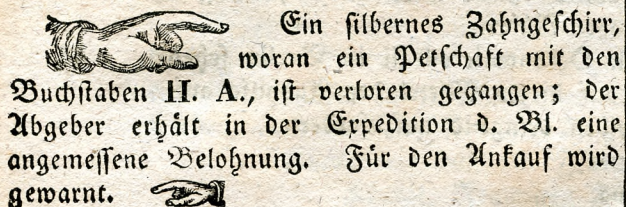 Ein silbernes Zahngeschirr,
woran ein Petschaft mit den
Buchstaben H. A., ist verloren gegangen; der
Abgeber erhält in der Expedition d. Bl. eine
angemessene Belohnung. Für den Ankauf wird
gewarnt.